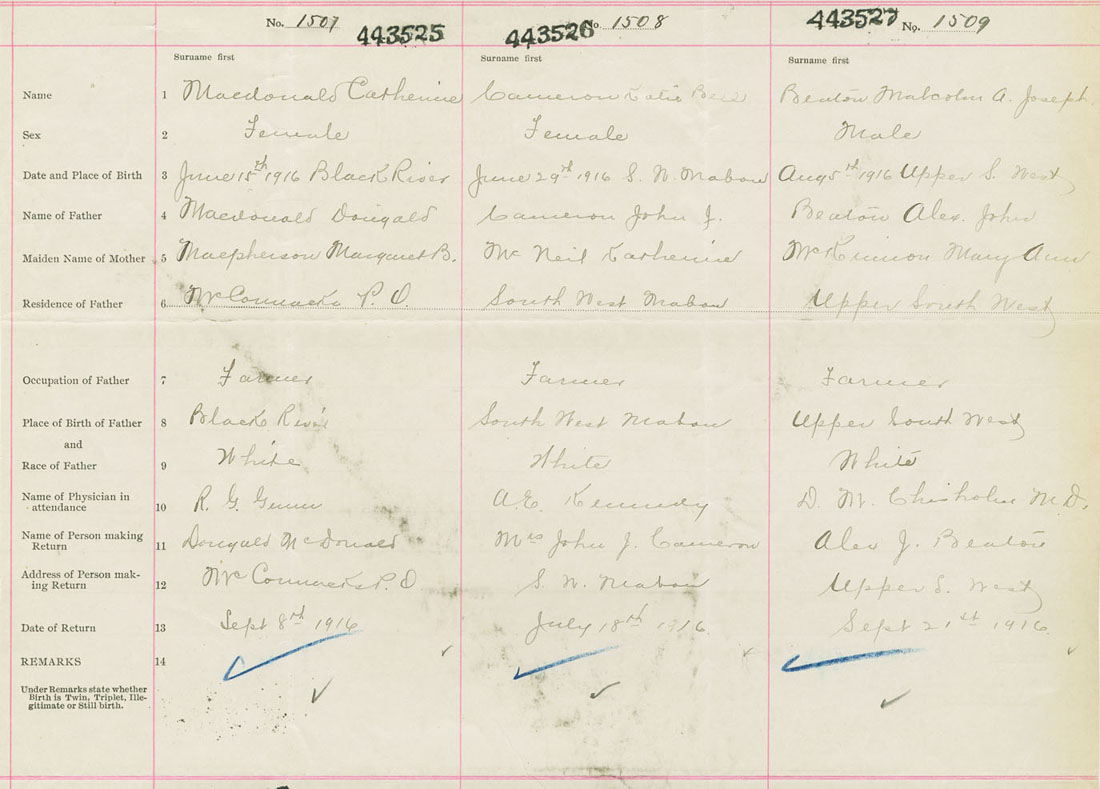 No. 1507 443525 No. 1508 443526 443527 No. 1509
Surname first Surname first Surname first
Name 1 Macdonald Catherine Cameron Katie Bell Beaton Malcolm A. Joseph.
Sex 2 Female Female Male
Date and Place of Birth 3 June 15th 1916 Black River June 29th 1916 S. W. Mabou Aug 5th 1916 Upper S. West
Name of Father 4 Macdonald Dougald Cameron John J. Beaton Alex. John
Maiden Name of Mother 5 Macpherson Margaret B. Mc Neil Katherine McKinnon Mary Ann
Residence of Father 6 McCormacks P. O. South West Mabou Upper South West
Occupation of Father 7 Farmer Farmer Farmer
Place of Birth of Father 8 Black River South West Mabou Upper South West
and
Race of Father 9 White White White
Name of Physician in
attendance 10 R. G. Gunn A. E. Kennedy D. M. Chisholm M.D.
Name of Person making
Return 11 Dougald McDonald Mrs John J. Cameron Alex J. Beaton
Address of Person mak-
ing Return 12 McCormacks P. O S. W. Mabou Upper S. West
Date of Return 13 Sept 8th 1916 July 18th 1916. Sept 21st 1916.
REMARKS 14
Under Remarks state whether
Birth is Twin, Triplet, Ille-
gitimate or Still birth.